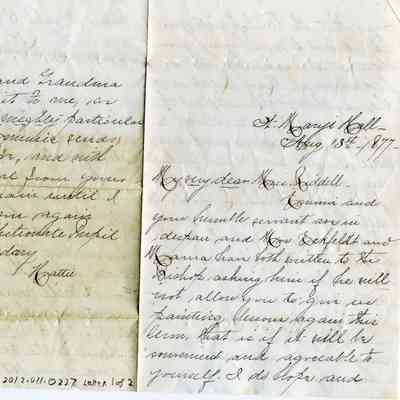 and Grandma
it to me, or
mighty particular
Grannie sends
and with
from yours
until I
again
Affectionate Pupil
Mary
Hattie
2012.011.0227 Letter 1 of 2
St. Mary's Hall-
Aug. 13th, 1877-
My very dear Miss Liddell-
and
your humble servant are in
despair and Mrs
Mama have both written to the
Bishop asking him if he will
not allow you to give us
painting lessons again this
term, that is if it will be
convenient and agreeable to
yourself. I do hope and